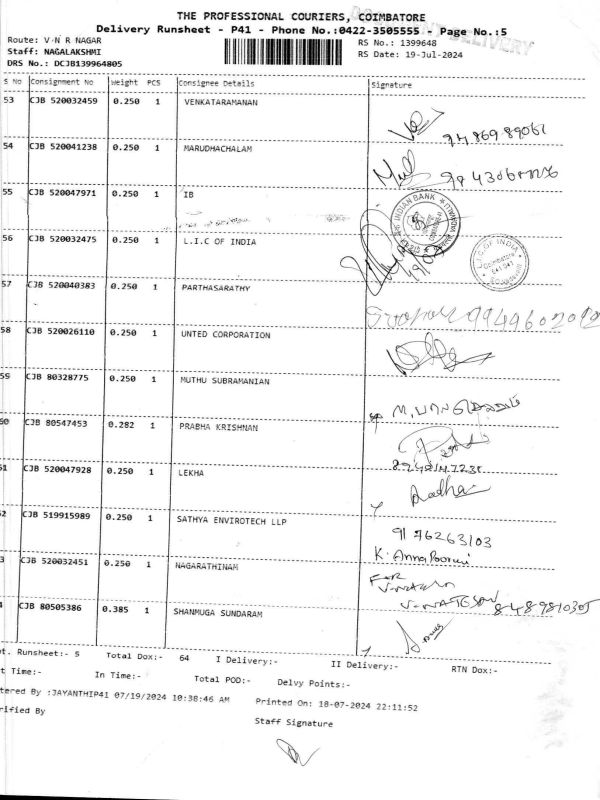 THE PROFESSIONAL COURIERS, COIMBATORE
Delivery Runsheet - P41 - Phone No.:0422-3505555 - Page No.:5
DELIVERY
Route: V N R NAGAR RS No.: 1399648
Staff: NAGALAKSHMI RS Date: 19-Jul-2024
DRS No.: DCJB139964805
S No Consignment No Weight PCS Consignee Details Signature
53 CJB 520032459 0.250 1 VENKATARAMANAN
54 CJB 520041238 0.250 1 MARUDHACHALAM
55 CJB 520047971 0.250 1 IB
INDIAN BANK
56 CJB 520032475 0.250 1 L.I.C OF INDIA
L.I.C. OF INDIA
Coimbatore
57 CJB 520040383 0.250 1 PARTHASARATHY
58 CJB 520026110 0.250 1 UNTED CORPORATION
59 CJB 80328775 0.250 1 MUTHU SUBRAMANIAN
60 CJB 80547453 0.282 1 PRABHA KRISHNAN
61 CJB 520047928 0.250 1 LEKHA
Radha
62 CJB 519915989 0.250 1 SATHYA ENVIROTECH LLP 9176263103
K. Annapoorani
3 CJB 520032451 0.250 1 NAGARATHINAM
FOR
V-NATESAN 8489810305
4 CJB 80505386 0.385 1 SHANMUGA SUNDARAM
t. Runsheet:- 5 Total Dox:- 64 I Delivery:- II Delivery:- RTN Dox:-
t Time:- In Time:- Total POD:- Delvy Points:-
tered By :JAYANTHIP41 07/19/2024 10:38:46 AM Printed On: 18-07-2024 22:11:52
rified By Staff Signature